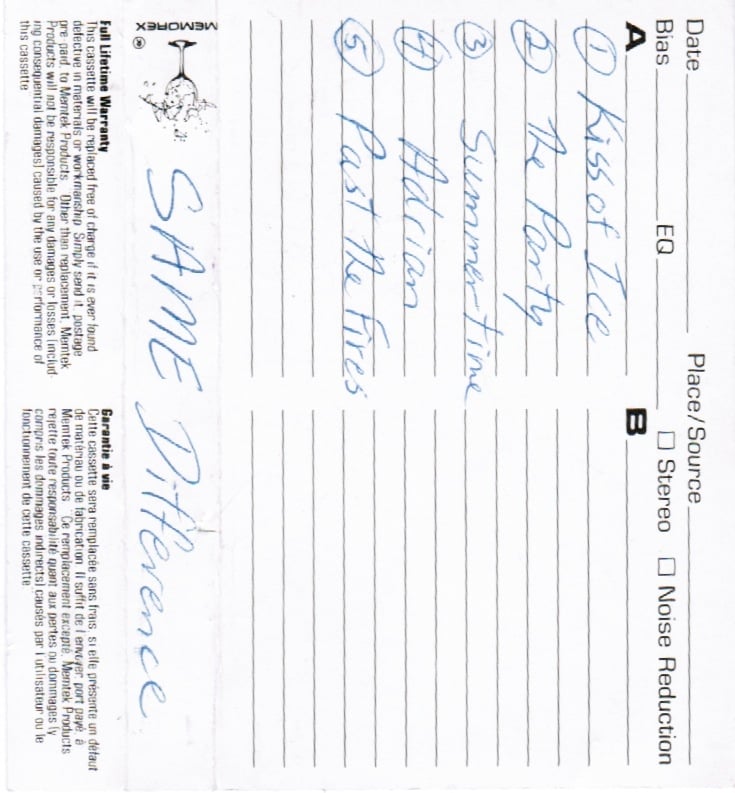 Date Place/Source
Bias EQ □ Stereo □ Noise Reduction
A B
① Kiss of Ice
② The Party
③ Summertime
④ Adrian
⑤ Past The Fires
MEMOREX ®
SAME Difference
Full Lifetime Warranty
This cassette will be replaced free of charge if it is ever found
defective in materials or workmanship. Simply send it, postage
pre-paid, to Memtek Products. Other than replacement, Memtek
Products will not be responsible for any damages or losses (includ-
ing consequential damages) caused by the use or performance of
this cassette
Garantie à vie
Cette cassette sera remplacée sans frais, si elle présente un défaut
de matériau ou de fabrication. Il suffit de l'envoyer, port payé, à
Memtek Products. Ce remplacement excepté, Memtek Products
rejette toute responsabilité quant aux pertes ou dommages (y
compris les dommages indirects) causés par l'utilisateur ou le
fonctionnement de cette cassette